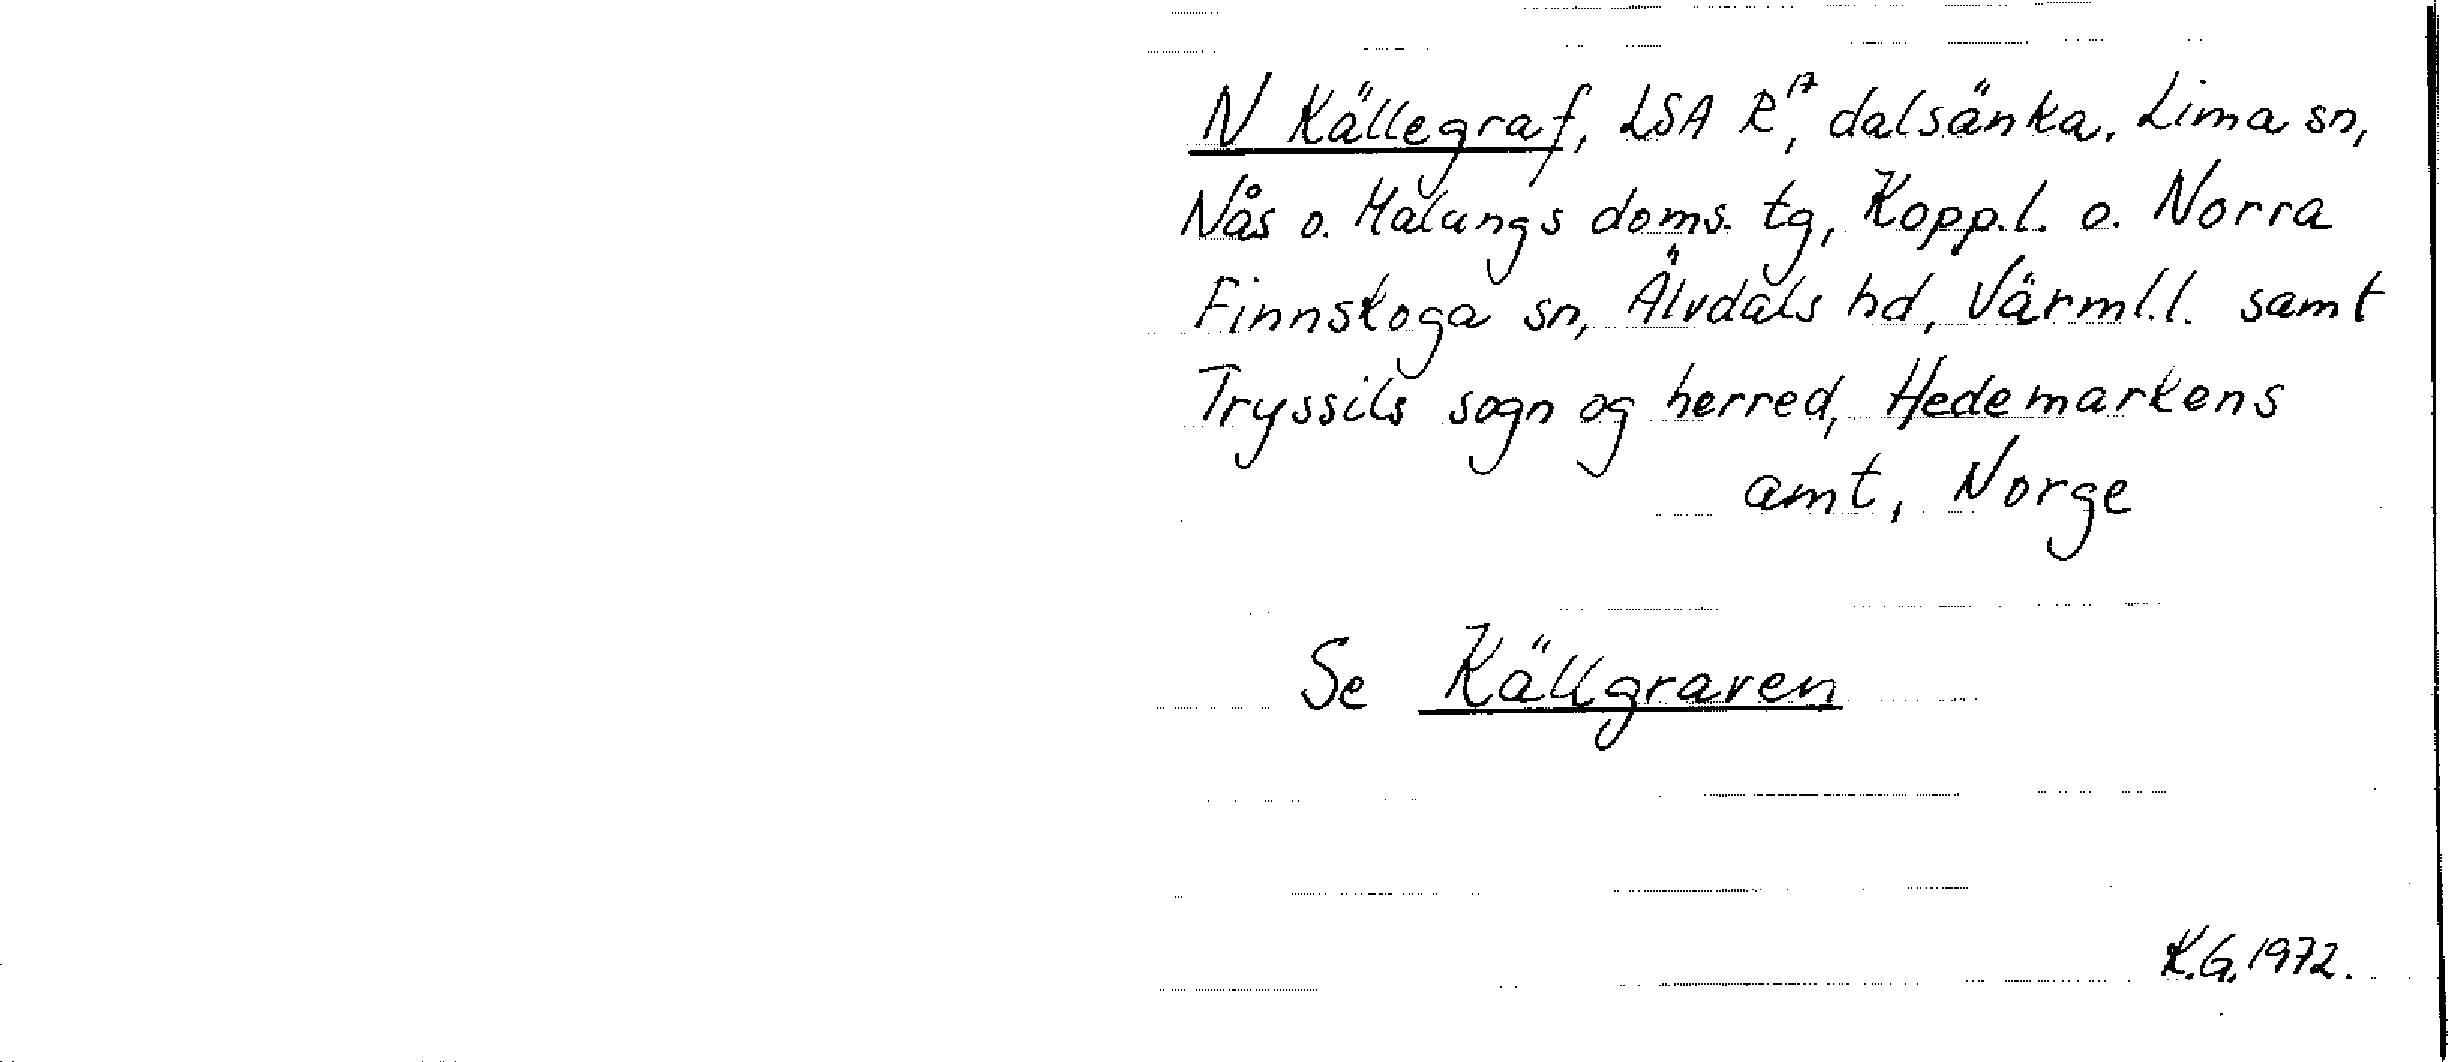 N Källegraf, LSA R¹⁷, dalsänka, Lima sn,
Nås o. Malungs doms. tg, Kopp.l. o. Norra
Finnskoga sn, Älvdals hd, Värml.l. samt
Tryssils sogn og herred, Hedemarkens
amt, Norge
Se Källgraven
K.G. 1972.